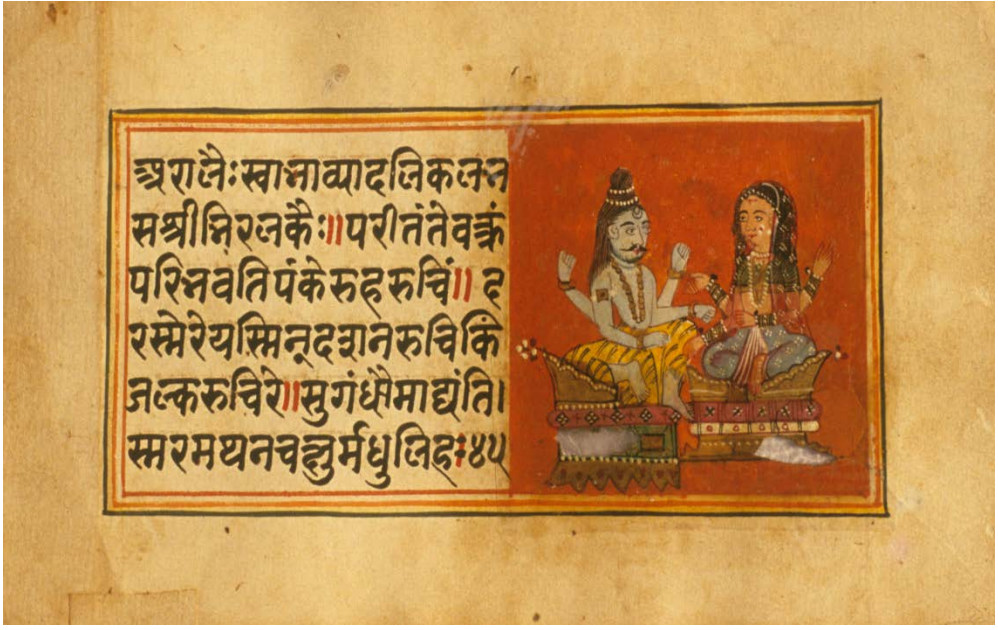 अरालैःस्वाभाव्यादलिकलभ
सश्रीभिरलकैः॥परीतंतेवक्रं
परिभवतिपंकेरुहरुचिं॥द
रस्मेरेयस्मिन्दशनरुचिकिं
जल्करुचिरे॥सुगंधौमाद्यंति।
स्मरमथनचक्षुर्मधुलिहः४५